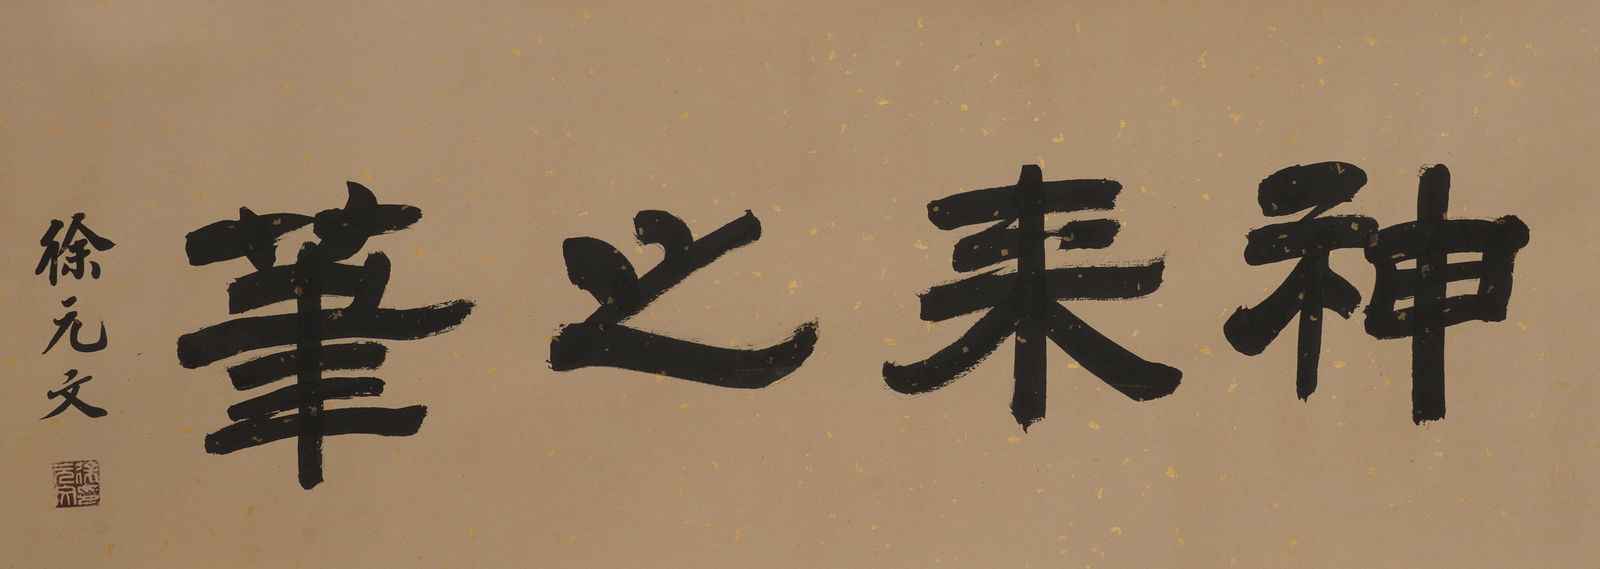 神来之筆
徐元文